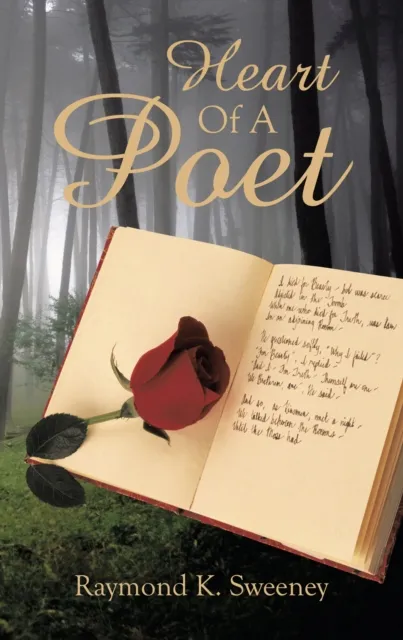 Heart
Of A
Poet
I died for Beauty - but was scarce
Adjusted in the Tomb
When one who died for Truth, was lain
In an adjoining Room -
He questioned softly, "Why I failed"?
"For Beauty", I replied -
"And I - For Truth - Themself are One -
We Bretheren, are", He said -
And so, as Kinsmen, met a night -
We talked between the Rooms -
Until the Moss had
Raymond K. Sweeney